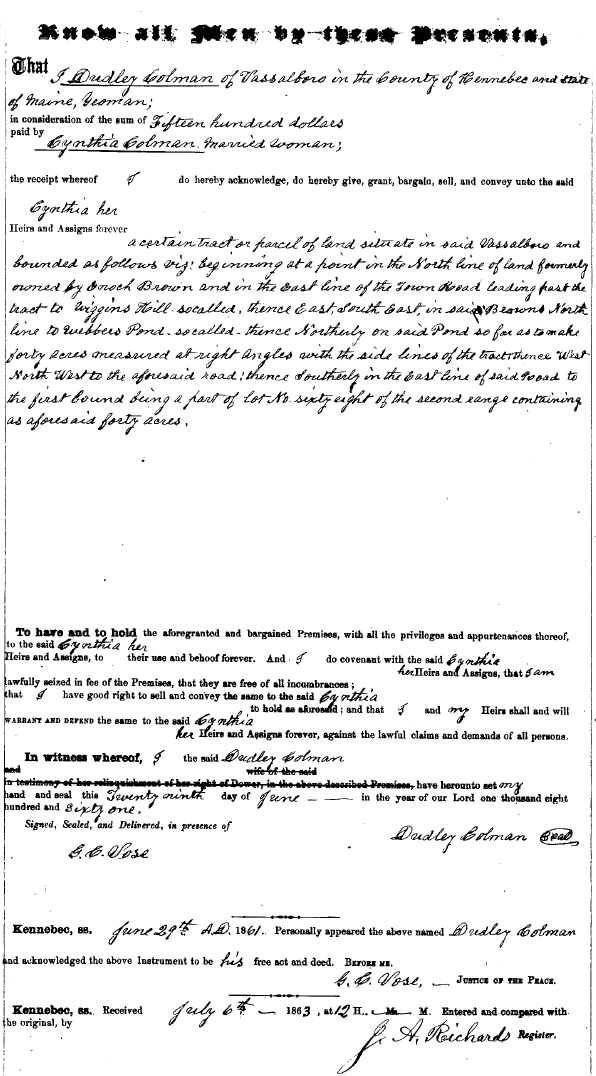 Know all Men by these Presents,
That I Dudley Colman of Vassalboro in the County of Kennebec and State
of Maine, Yeoman;
in consideration of the sum of Fifteen hundred dollars
paid by Cynthia Colman. Married woman;
the receipt whereof I do hereby acknowledge, do hereby give, grant, bargain, sell, and convey unto the said
Cynthia her
Heirs and Assigns forever
a certain tract or parcel of land situate in said Vassalboro and
bounded as follows viz: beginning at a point in the North line of land formerly
owned by Enoch Brown and in the East line of the Town Road leading past the
tract to Wiggins Hill socalled, thence East, South East, in said Browns North
line to Webbers Pond - socalled - thence Northerly on said Pond so far as to make
forty acres measured at right angles with the side lines of the tract; thence West
North West to the aforesaid road; thence Southerly in the East line of said Road to
the first bound being a part of lot No. sixty eight of the second range containing
as aforesaid forty acres.
To have and to hold the aforegranted and bargained Premises, with all the privileges and appurtenances thereof,
to the said Cynthia her
Heirs and Assigns, to their use and behoof forever. And I do covenant with the said Cynthia
her Heirs and Assigns, that I am
lawfully seized in fee of the Premises, that they are free of all incumbrances;
that I have good right to sell and convey the same to the said Cynthia
to hold as aforesaid; and that I and my Heirs shall and will
WARRANT AND DEFEND the same to the said Cynthia
her Heirs and Assigns forever, against the lawful claims and demands of all persons.
In witness whereof, I the said Dudley Colman
and wife of the said
in testimony of her relinquishment of her right of Dower, in the above described Premises, have hereunto set my
hand and seal this Twenty ninth day of June — in the year of our Lord one thousand eight
hundred and Sixty one.
Signed, Sealed, and Delivered, in presence of
Dudley Colman Seal
G. C. Vose
Kennebec, ss. June 29th A.D. 1861. Personally appeared the above named Dudley Colman
and acknowledged the above Instrument to be his free act and deed. BEFORE ME.
G. C. Vose, — JUSTICE OF THE PEACE.
Kennebec, ss. Received July 6th — 1863, at 12 H., M. Entered and compared with
the original, by J. A. Richards Register.